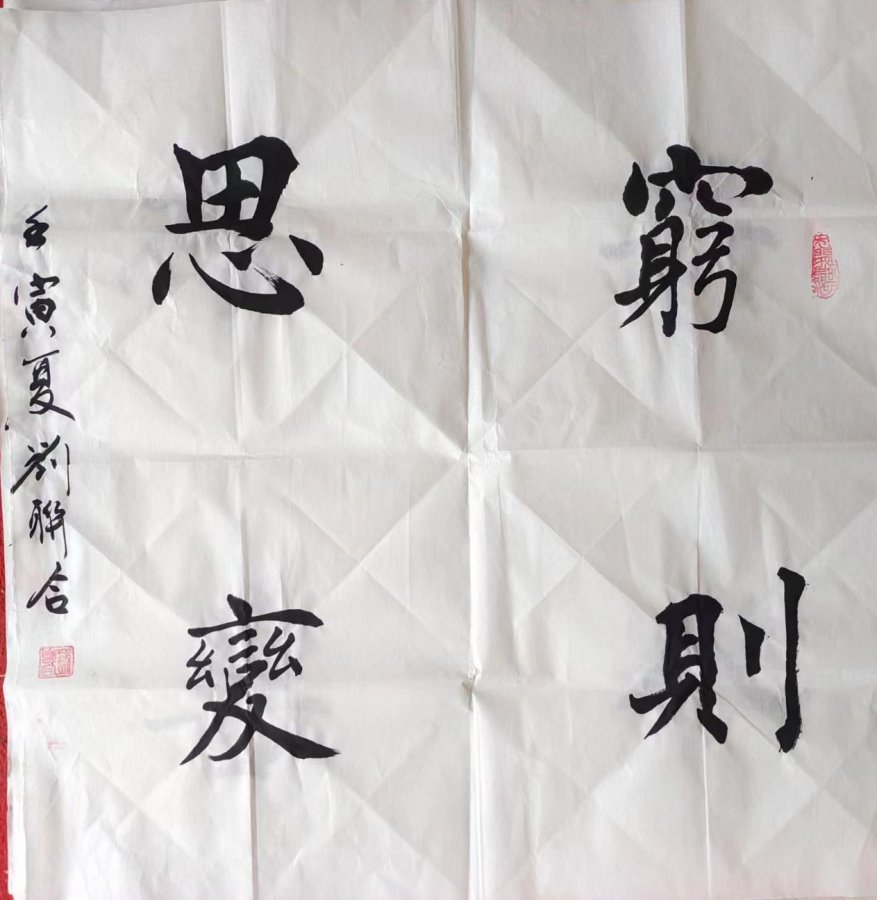 窮則
思變
壬寅夏劉聯合